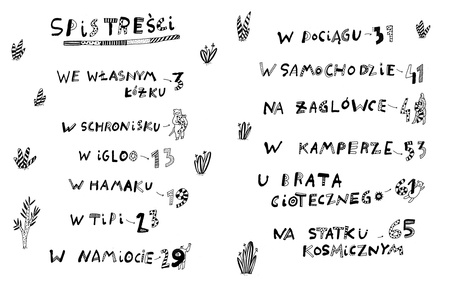 SPIS TREŚCI
WE WŁASNYM
ŁÓŻKU 3
W SCHRONISKU
W IGLOO 13
W HAMAKU 19
W TIPI 23
W NAMIOCIE 29
W POCIĄGU 31
W SAMOCHODZIE 41
NA ŻAGLÓWCE
W KAMPERZE 53
U BRATA
CIOTECZNEGO 61
NA STATKU 65
KOSMICZNYM